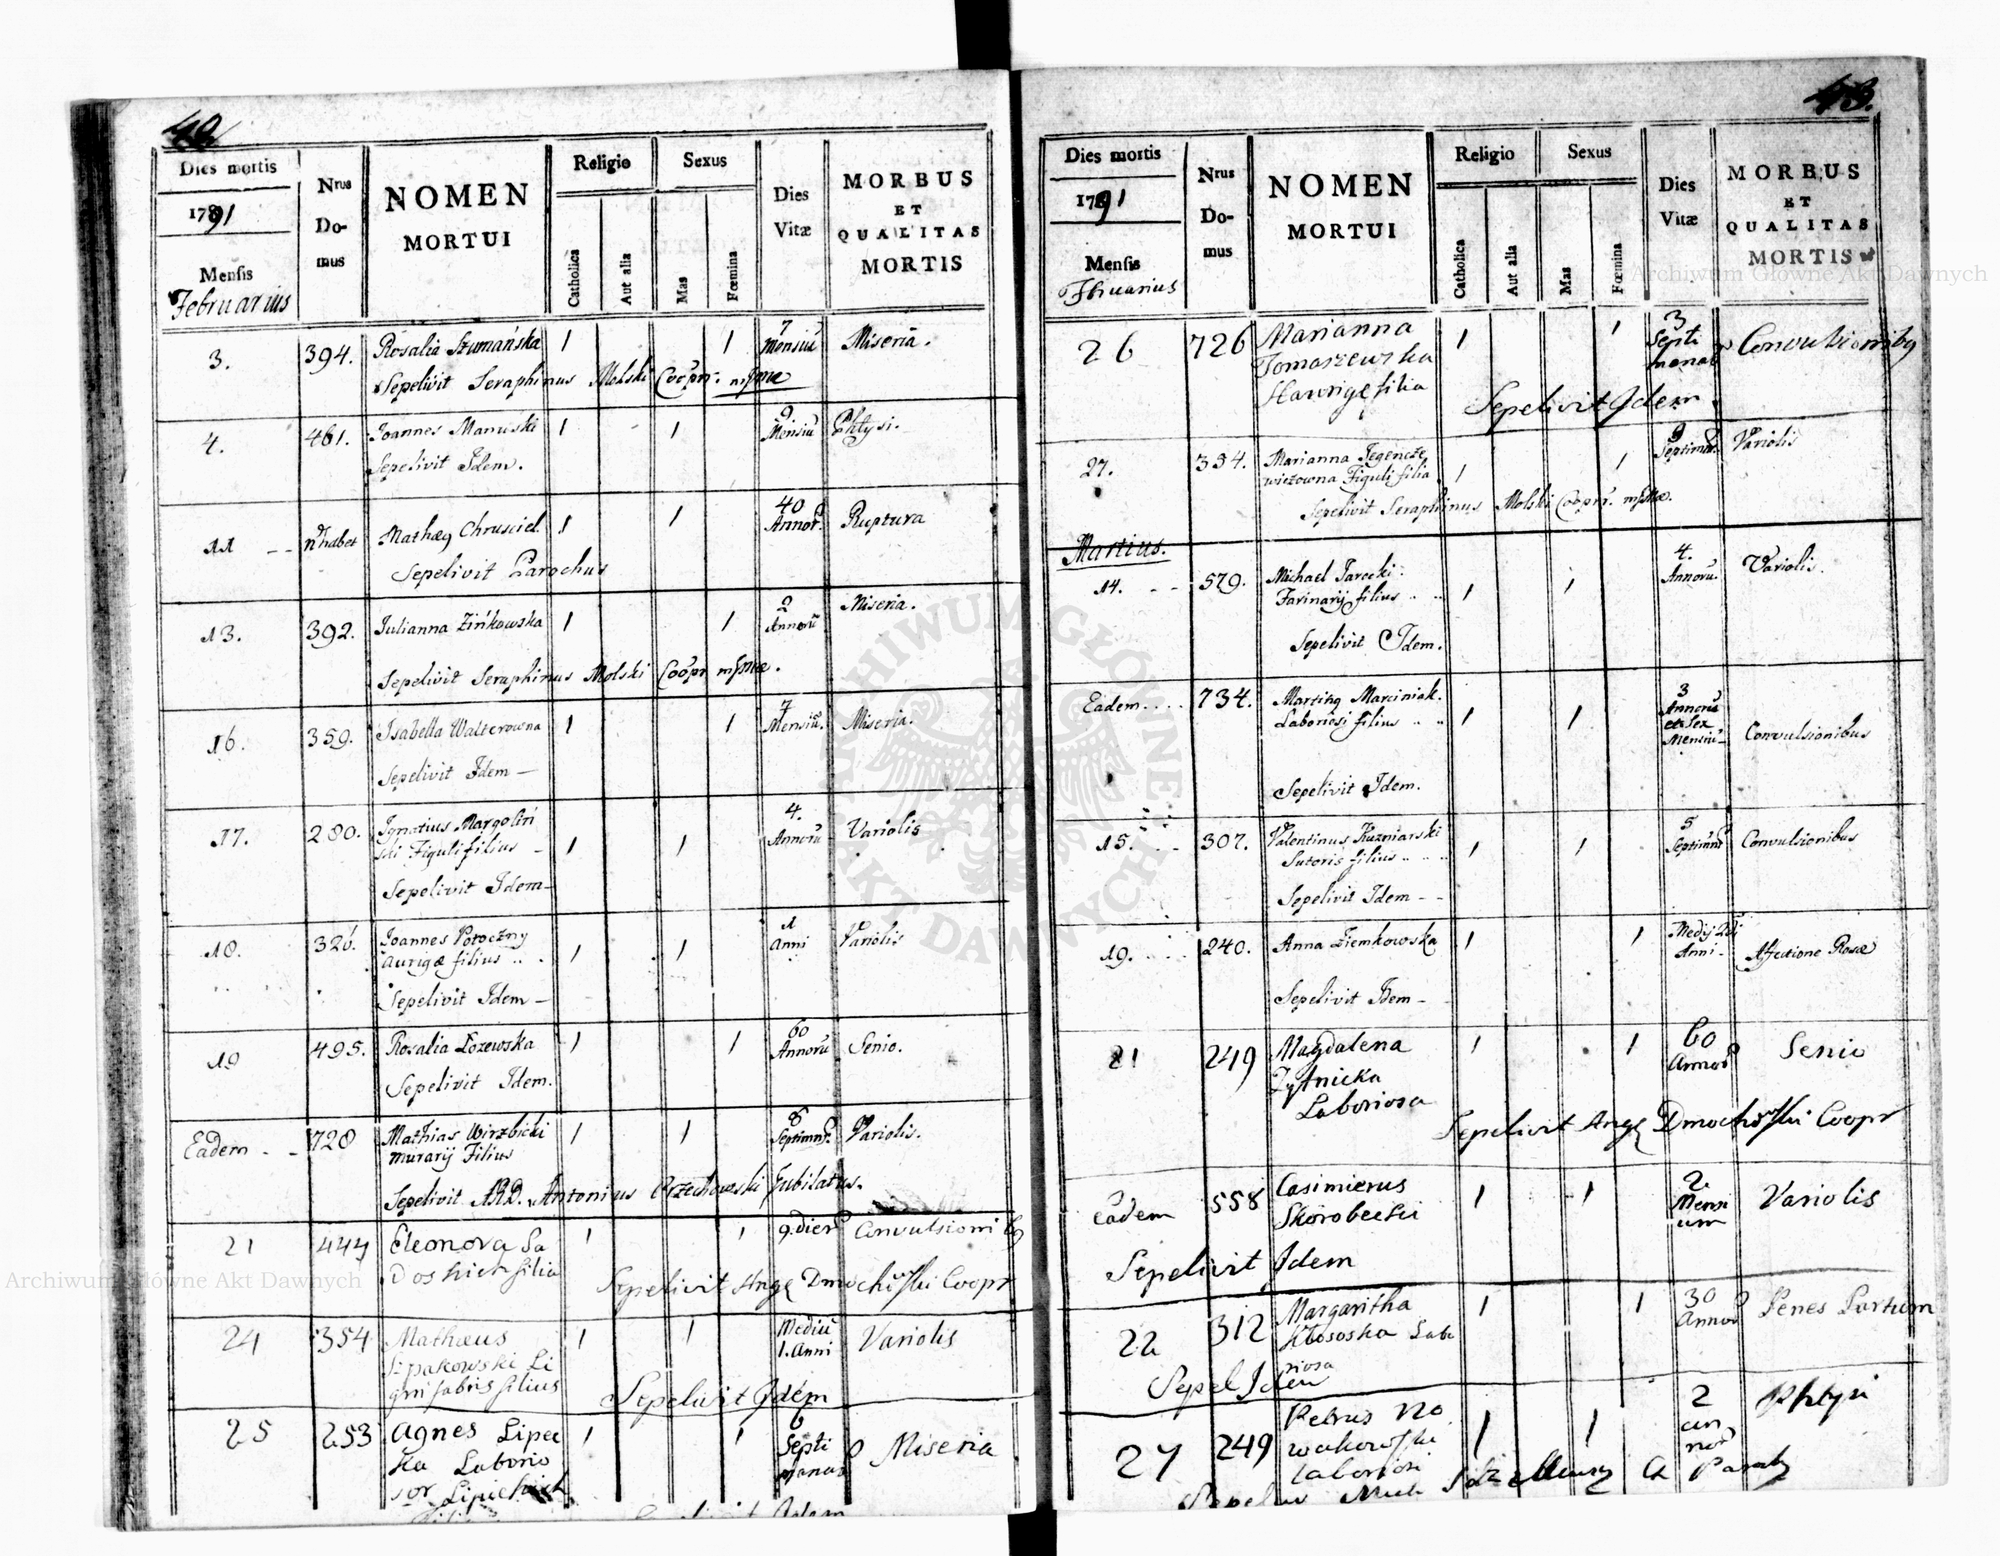 Dies mortis
1791
Mensis
Februarius
Nrus Domus
NOMEN
MORTUI
Religio
Catholica
Aut alia
Sexus
Mas
Fœmina
Dies
Vitæ
MORBUS
ET
QUALITAS
MORTIS
3. 394. Rosalia Szumańska 1 1 7 Mensiū Miseria.
Sepelivit Seraphinus Molski Coopr.
4. 461. Joannes Manuski 1 1 9 Mensiū Phtysi.
Sepelivit Idem.
11 -- n habet Mathæg Chrusciel. 1 1 40 Annor. Ruptura
Sepelivit Parochus
13. 392. Julianna Zińkowska 1 1 2 Annorū Miseria.
Sepelivit Seraphinus Molski Coopr
16. 359. Isabella Walterowna 1 1 7 Mensiū. Miseria.
Sepelivit Idem —
17. 280. Ignatius Margoliń
ski Figuli filius - 1 1 4. Annorū Variolis
Sepelivit Idem —
18. 326. Joannes Potoczny
Aurigæ filius .. 1 1 1 Anni Variolis
Sepelivit Idem —
19 495. Rosalia Łozewska 1 1 60 Annorū Senio.
Sepelivit Idem.
Eadem - - 728 Mathias Wirzbicki 1 1 8 Septimn. Variolis.
murarij Filius
Sepelivit A.R.D. Antonius Orzechowski Jubilatus.
21 444 Eleonora Sa 1 1 9. dier Convulsioni bg
Doskich filia
Sepelivit Ang Dmochowski Coopr
24 354 Mathæus 1 1 Mediū 1. Anni Variolis
Sipakowski Li
gni fabris filius
Sepelivit Idem
25 253 Agnes Lipec 1 1 6 Septi manar Miseria
ka Laborio
sor Lipickich
Idem
43.
Dies mortis
1791
Mensis
Fbruarius
Nrus Domus
NOMEN
MORTUI
Religio
Catholica
Aut alia
Sexus
Mas
Fœmina
Dies
Vitæ
MORBUS
ET
QUALITAS
MORTIS
26 726 Marianna 1 1 3 Septi manar Convulsionibg
Tomaszewska
Haurigæ filia
Sepelivit Idem.
27. 354. Marianna Jegencze
wiczowna Figuli filia 1 1 9 Septimn. Variolis
Sepelivit Seraphinus Molski Coopr.
Martius.
14. - - 579. Michael Jarecki. 4. Annorū. Variolis.
Farinarij filius .. .. 1 1
Sepelivit Idem.
Eadem.... 734. Marting Marciniak. 3 Annorū et Sex Mensiū-
Laboriosi filius .. .. 1 1 Convulsionibus
Sepelivit Idem.
15. 307. Valentinus Kuzniarski 5 Septimn Convulsionibus
Sutoris filius .. .. 1 1
Sepelivit Idem - -
19. 240. Anna Ziemkowska 1 1 Medij 2di Anni - Affectione Rosæ
Sepelivit Idem -
21 249 Magdalena 1 1 60 Annor Senio
Zytnicka
Laboriosa
Sepelivit Ang Dmochowski Coopr
Eadem 558 Casimierus 1 1 2 Mensium Variolis
Skorobecki
Sepelivit Idem
22 312 Margaritha 1 1 30 Annor Penes Partum
Kłososka Labo
riosa
Sepel Idem
27 249 Petrus No 1 1 2 annor Phtysi
wakowski
Laboriosi
Archiwum Główne Akt Dawnych
Archiwum Główne Akt Dawnych
ARCHIWUM GŁÓWNE AKT DAWNYCH